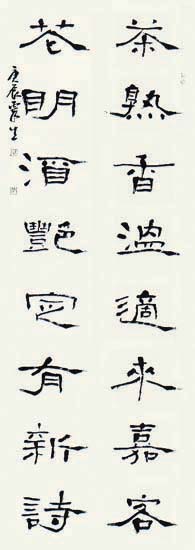 茶熟香温適來嘉客
花明酒艷定有新詩
庚辰